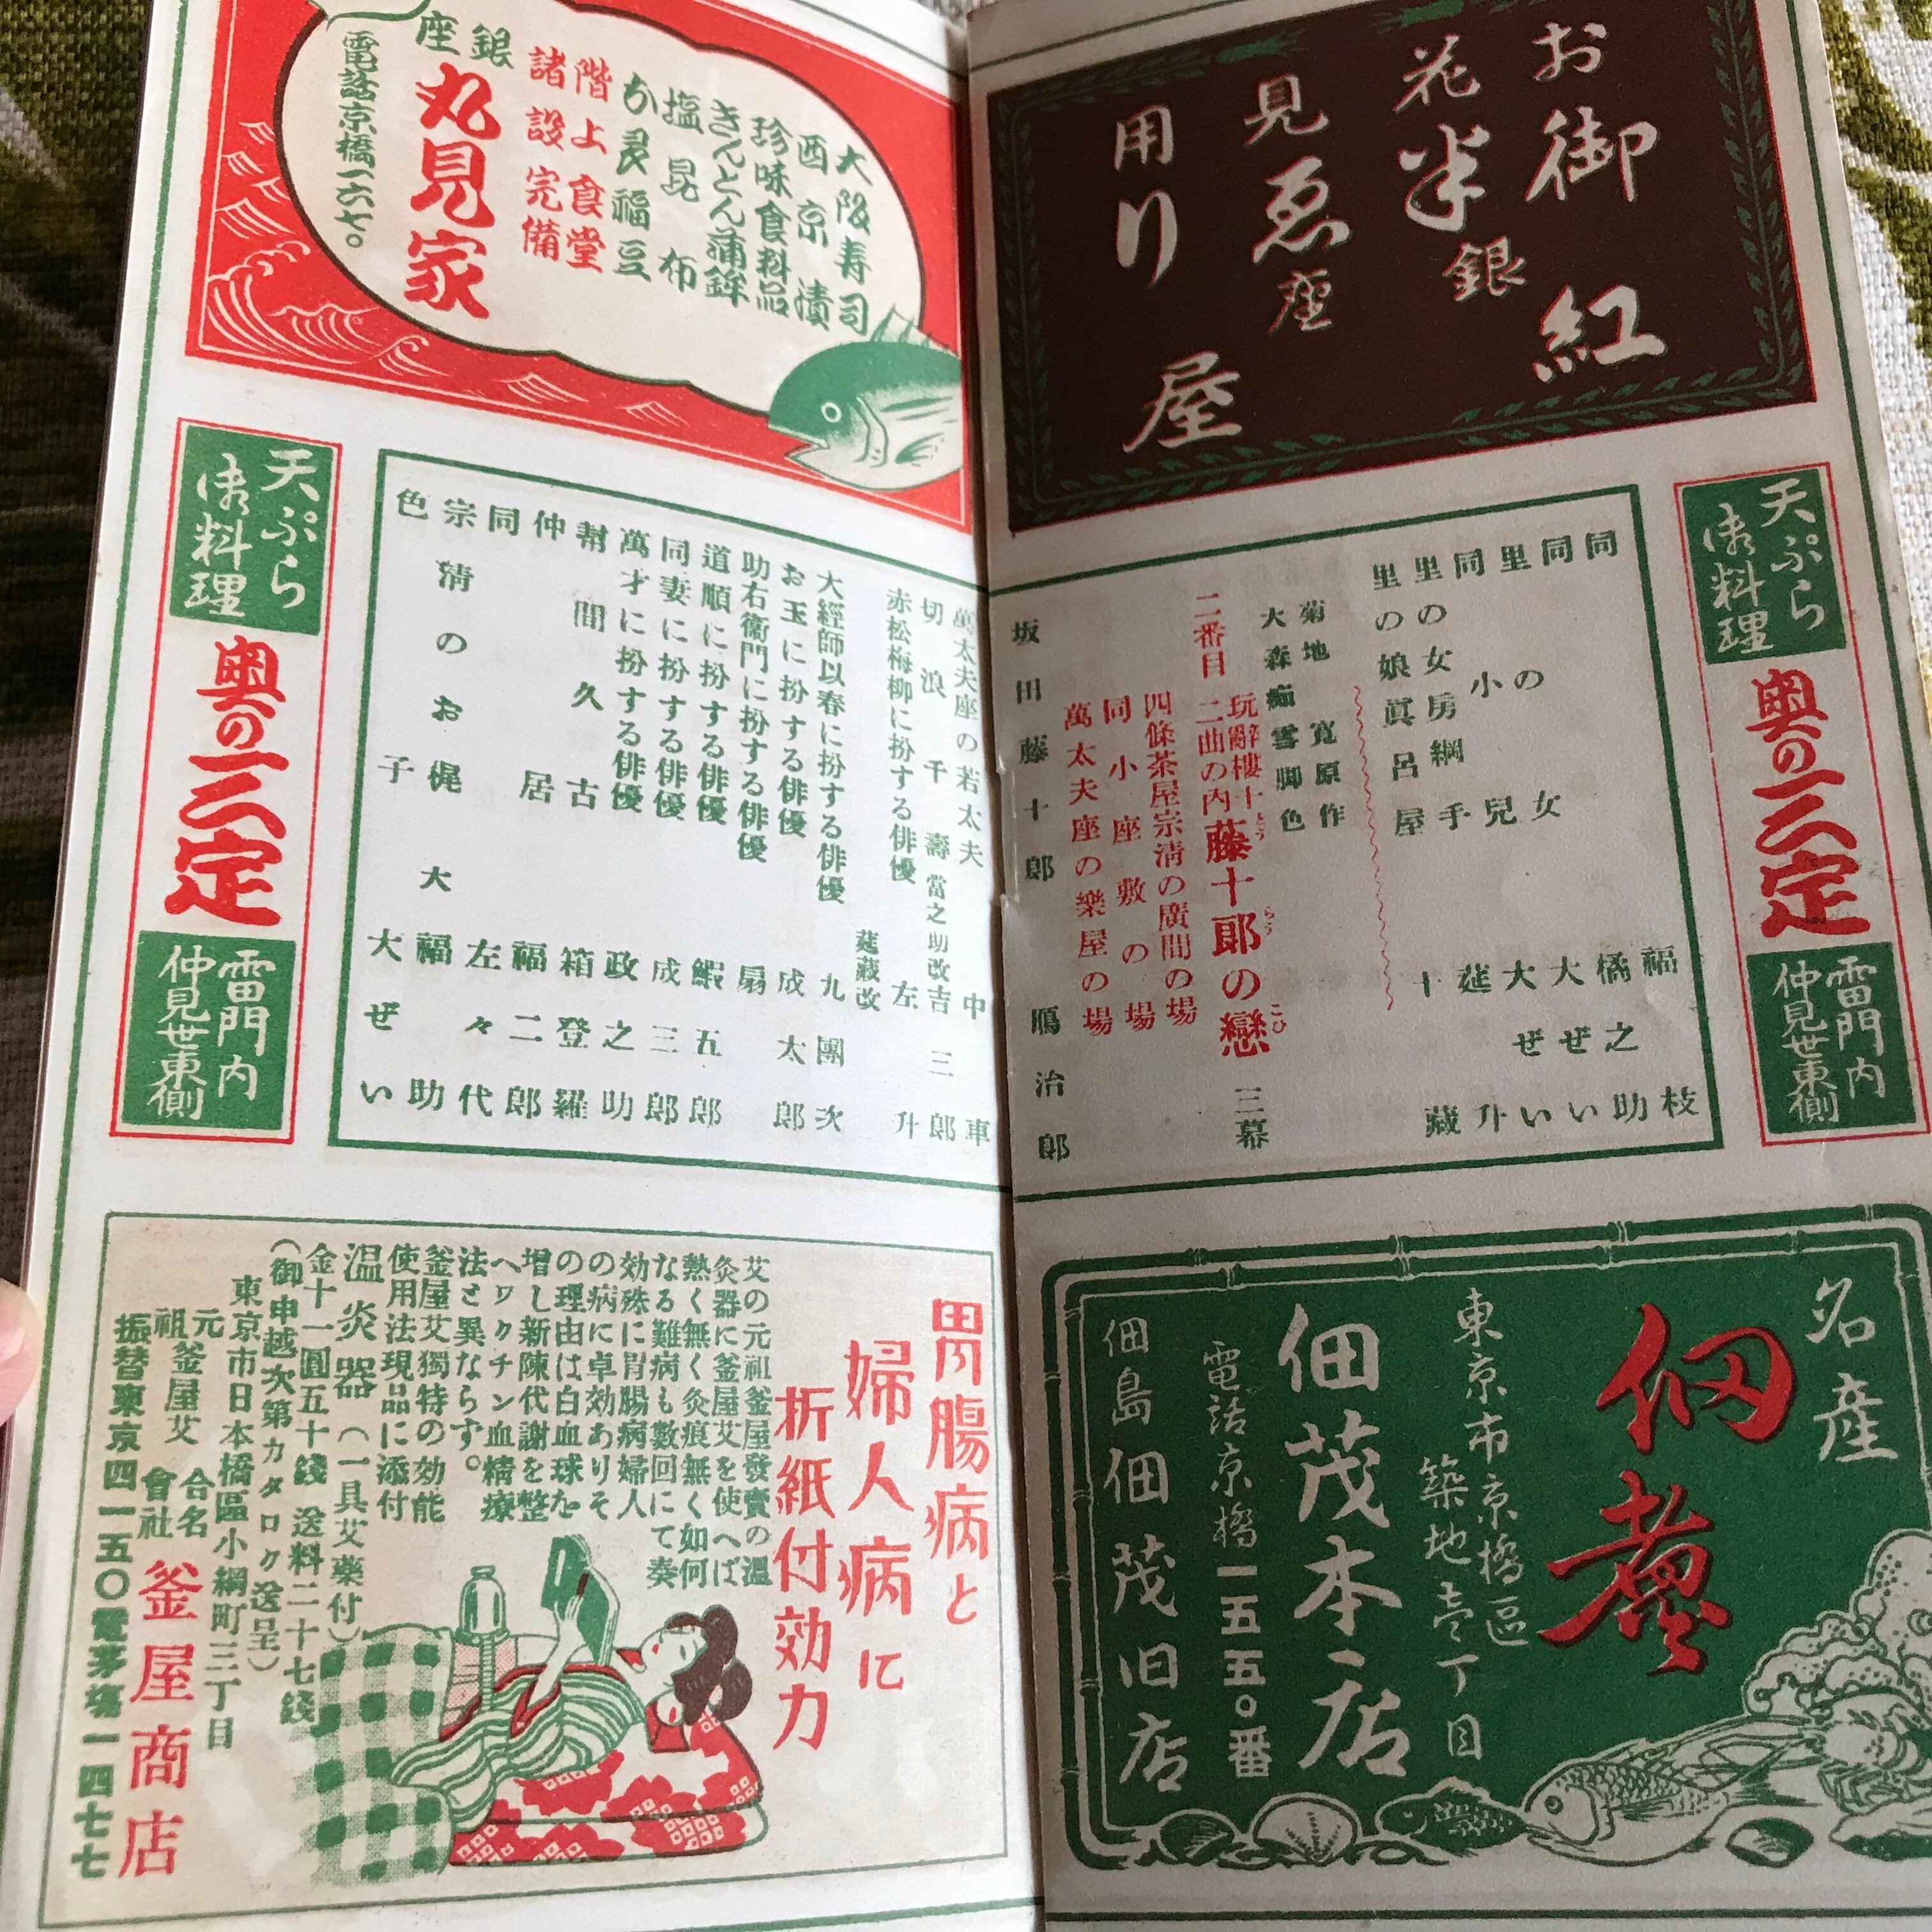 お御紅
花半銀
見ゑ座
用り屋
天ぷら
御料理
奥の三定
雷門内
仲見世東側
同 福枝
同 橘之助
里の女 大ぜい
同小兒 大ぜい
里の女房綱手 莚升
里の娘眞呂屋 十藏
菊地寛原作
大森痴雪脚色
二番目
玩辭樓十
二曲の内
藤十郎の戀 三幕
四條茶屋宗清の廣間の場
同小座敷の場
萬太夫座の樂屋の場
坂田藤十郎 鴈治郎
名産
佃煮
東京市京橋區
築地壱丁目
佃茂本店
電話京橋一五五〇番
佃島佃茂旧店
大阪寿司
西京漬
珍味食料品
きんとん蒲鉾
塩昆布
お多福豆
階上食堂
諸設完備
銀座
丸見家
電話京橋一六七〇
萬太夫座の若太夫 中車
切浪千壽 當之助改吉三郎
赤松梅柳に扮する俳優 左升
莚藏改
大經師以春に扮する俳優 九團次
お玉に扮する俳優 成太郎
助右衞門に扮する俳優 扇
道順に扮する俳優 鰕五郎
同妻に扮する俳優 成三郎
萬才に扮する俳優 政之助
幇間久古 箱登羅
仲居 福二郎
同 左々代
宗清のお梶 大 福助
色子 大ぜい
天ぷら
御料理
奥の三定
雷門内
仲見世東側
胃腸病と
婦人病に
折紙付効力
艾の元祖釜屋發賣の溫
灸器に釜屋艾を使へば
熱く無く灸痕無く如何
なる難病も數回にて奏
効殊に胃腸病婦人
の病に卓効ありそ
の理由は白血球を
増し新陳代謝を整
へワクチン血精療
法と異ならす。
釜屋艾獨特の効能
使用法現品に添付
溫灸器(一具艾藥付)
金十一圓五十錢 送料二十七錢
(御申越次第カタログ送呈)
東京市日本橋區小網町三丁目
元祖釜屋艾 合名會社 釜屋商店
振替東京四一五〇電茅場一四七七